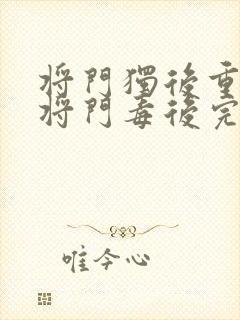 将門獨後重
将門毒後完
唯今心